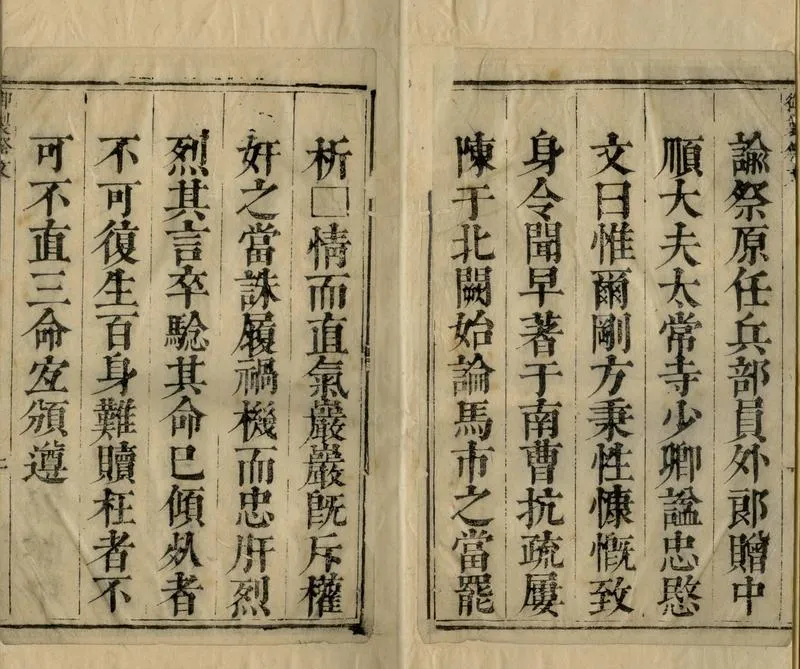 諭祭原任兵部員外郎贈中
順大夫太常寺少卿謚忠愍
文曰惟爾剛方秉性慷慨致
身令聞早著于南曹抗疏屢
陳于北闕始論馬市之當罷
析□情而直氣巖巖旣斥權
奸之當誅履禍機而忠肝烈
烈其言卒騐其命已傾死者
不可復生百身難贖枉者不
可不直三命宐頒遵